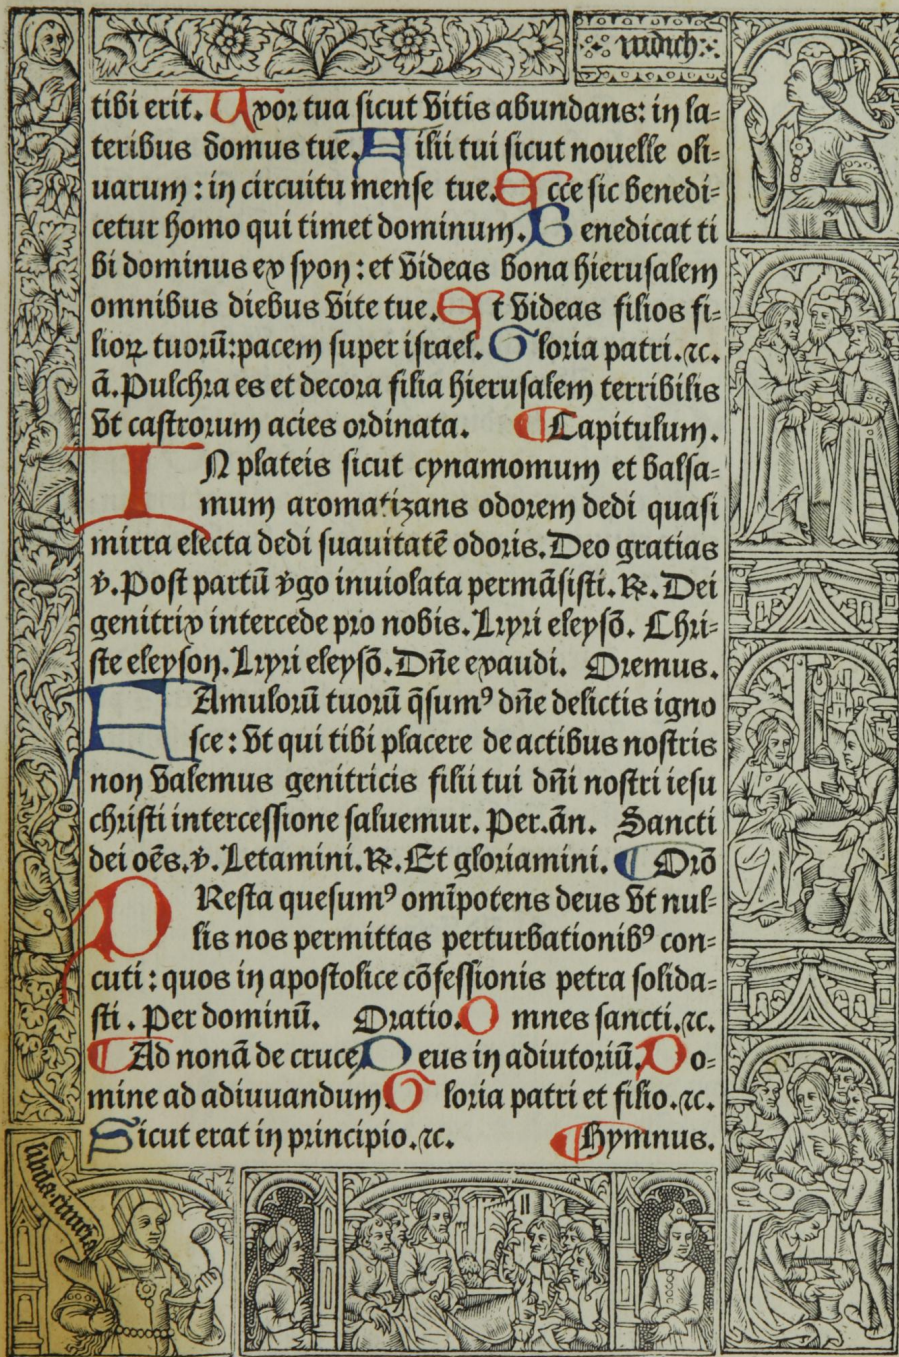 iudich
tibi erit. Uxor tua sicut vitis abundans: in la-
teribus domus tue. Filii tui sicut nouelle oli-
uarum: in circuitu mense tue. Ecce sic benedi-
cetur homo qui timet dominum. Benedicat ti
bi dominus ex syon: et videas bona hierusalem
omnibus diebus vite tue. Et videas filios fi-
lioꝝ tuorū: pacem super israel. Gloria patri. ⁊c.
ā. Pulchra es et decora filia hierusalem terribilis
vt castrorum acies ordinata. ¶ Capitulum.
IN plateis sicut cynamomum et balsa-
mum aromatizans odorem dedi quasi
mirra electa dedi suauitatē odoris. Deo gratias
ꝟ. Post partū ꝟgo inuiolata permāsisti. ℟. Dei
genitrix intercede pro nobis. Kyri eleysō. Chri-
ste eleyson. Kyri eleysō. Dn̄e exaudi. Oremus.
FAmulorū tuorū q̄sumꝰ dn̄e delictis igno
sce: vt qui tibi placere de actibus nostris
non valemus genitricis filii tui dn̄i nostri iesu
christi intercessione saluemur. Per. ān. Sancti
dei oēs. ꝟ. Letamini. ℟. Et gloriamini. ¶ Orō
PResta quesumꝰ omīpotens deus vt nul-
lis nos permittas perturbationibꝰ con-
cuti: quos in apostolice cōfessionis petra solida-
sti. Per dominū. Oratio. Omnes sancti. ⁊c.
¶ Ad nonā de cruce. Deus in adiutoriū. Do-
mine ad adiuuandum. Gloria patri et filio. ⁊c.
Sicut erat in principio. ⁊c. ¶ Hymnus.